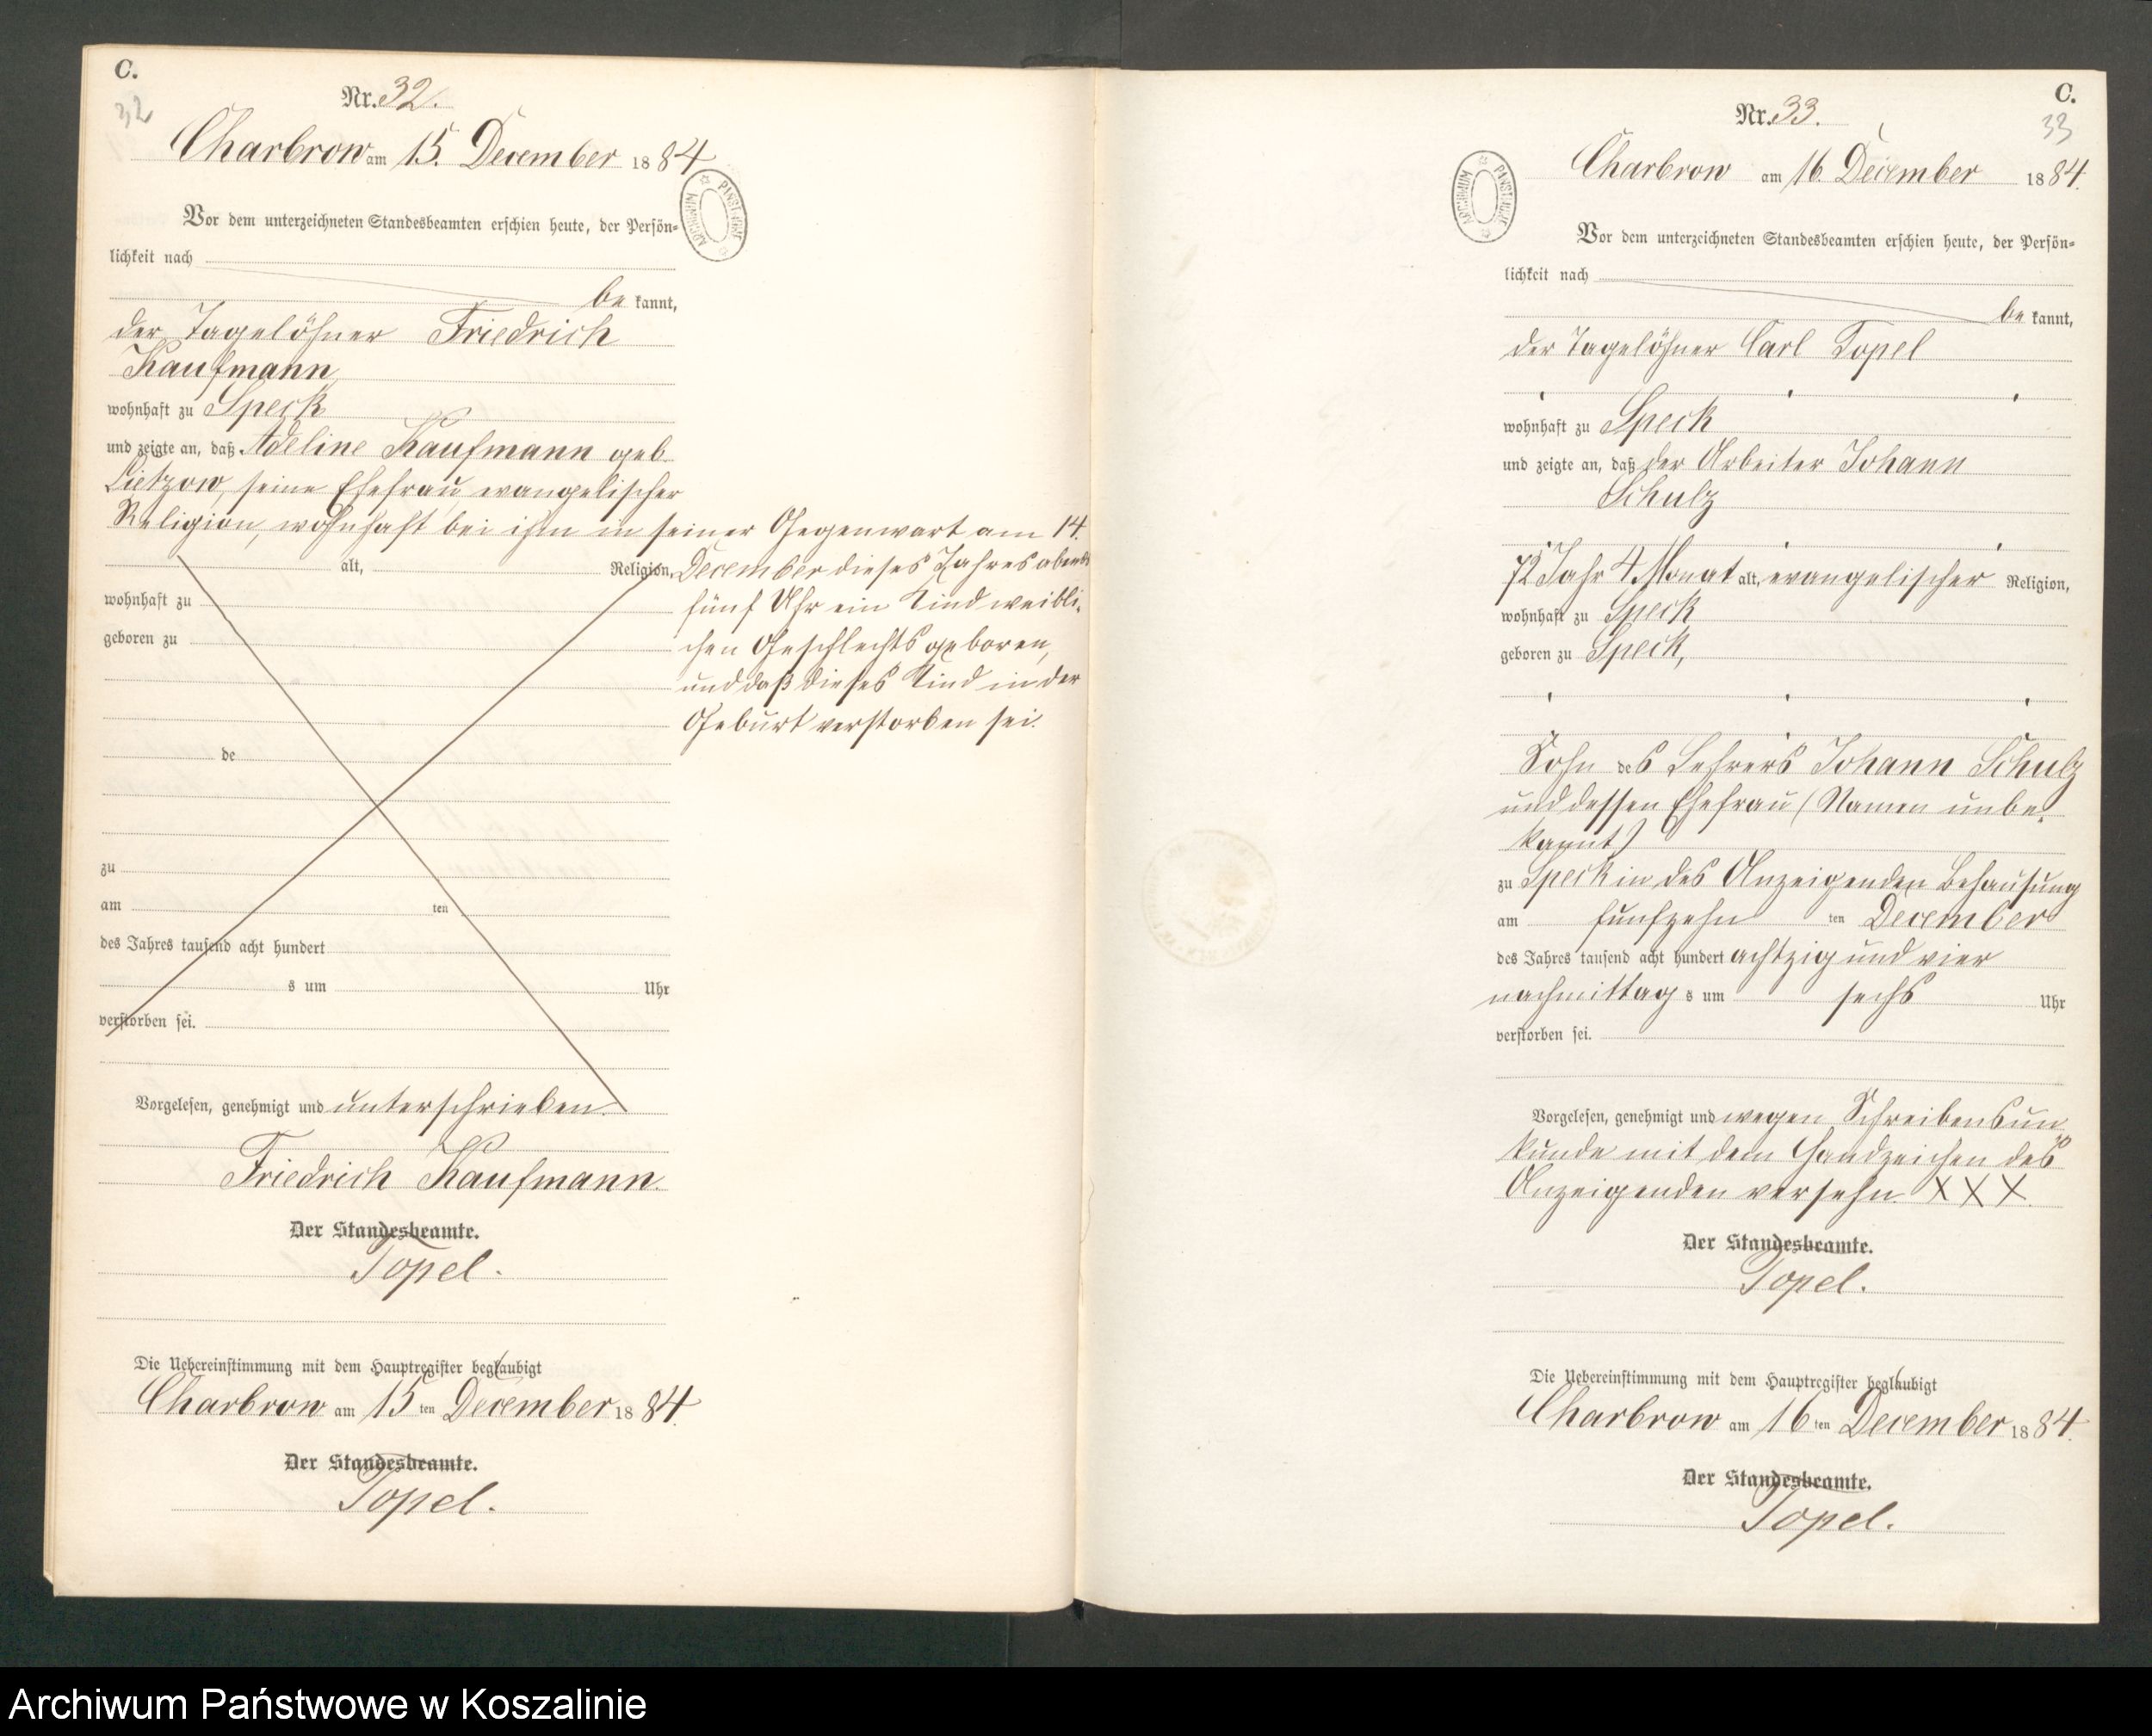 C.
32
Nr. 32.
Charbrow am 15. December 1884
ARCHIWUM PAŃSTWOWE
Vor dem unterzeichneten Standesbeamten erschien heute, der Persön-
lichkeit nach
be kannt,
der Tagelöhner Friedrich
Kaufmann
wohnhaft zu Speck
und zeigte an, daß Adeline Kaufmann geb.
Lietzow, seine Ehefrau, evangelischer
Religion, wohnhaft bei ihm in seiner Gegenwart am 14.
alt, Religion, December dieses Jahres abends
wohnhaft zu fünf Uhr ein Kind weibli-
geboren zu chen Geschlechts geboren,
und daß dieses Kind in der
Geburt verstorben sei.
de
zu
am ten
des Jahres tausend acht hundert
s um Uhr
verstorben sei.
Vorgelesen, genehmigt und unterschrieben.
Friedrich Kaufmann.
Der Standesbeamte.
Topel.
Die Uebereinstimmung mit dem Hauptregister beglaubigt
Charbrow am 15 ten December 1884.
Der Standesbeamte.
Topel.
C.
33
Nr. 33.
Charbrow am 16. December 1884.
ARCHIWUM PAŃSTWOWE
Vor dem unterzeichneten Standesbeamten erschien heute, der Persön-
lichkeit nach
be kannt,
der Tagelöhner Carl Topel
wohnhaft zu Speck
und zeigte an, daß der Arbeiter Johann
Schulz
72 Jahr 4 Monat alt, evangelischer Religion,
wohnhaft zu Speck
geboren zu Speck,
Sohn des Lehrers Johann Schulz
und dessen Ehefrau (Namen unbe-
kannt)
zu Speck in des Anzeigenden Behausung
am funfzehn ten December
des Jahres tausend acht hundert achtzig und vier
nachmittag s um sechs Uhr
verstorben sei.
Vorgelesen, genehmigt und wegen Schreibensun
kunde mit dem Handzeichen des
Anzeigenden versehn. XXX.
Der Standesbeamte.
Topel.
Die Uebereinstimmung mit dem Hauptregister beglaubigt
Charbrow am 16 ten December 1884.
Der Standesbeamte.
Topel.
Archiwum Państwowe w Koszalinie